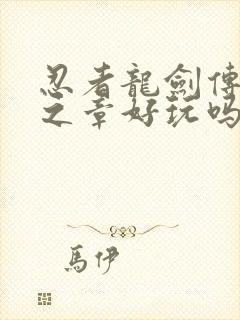 忍者龍劍傳
之章好玩吗
馬伊